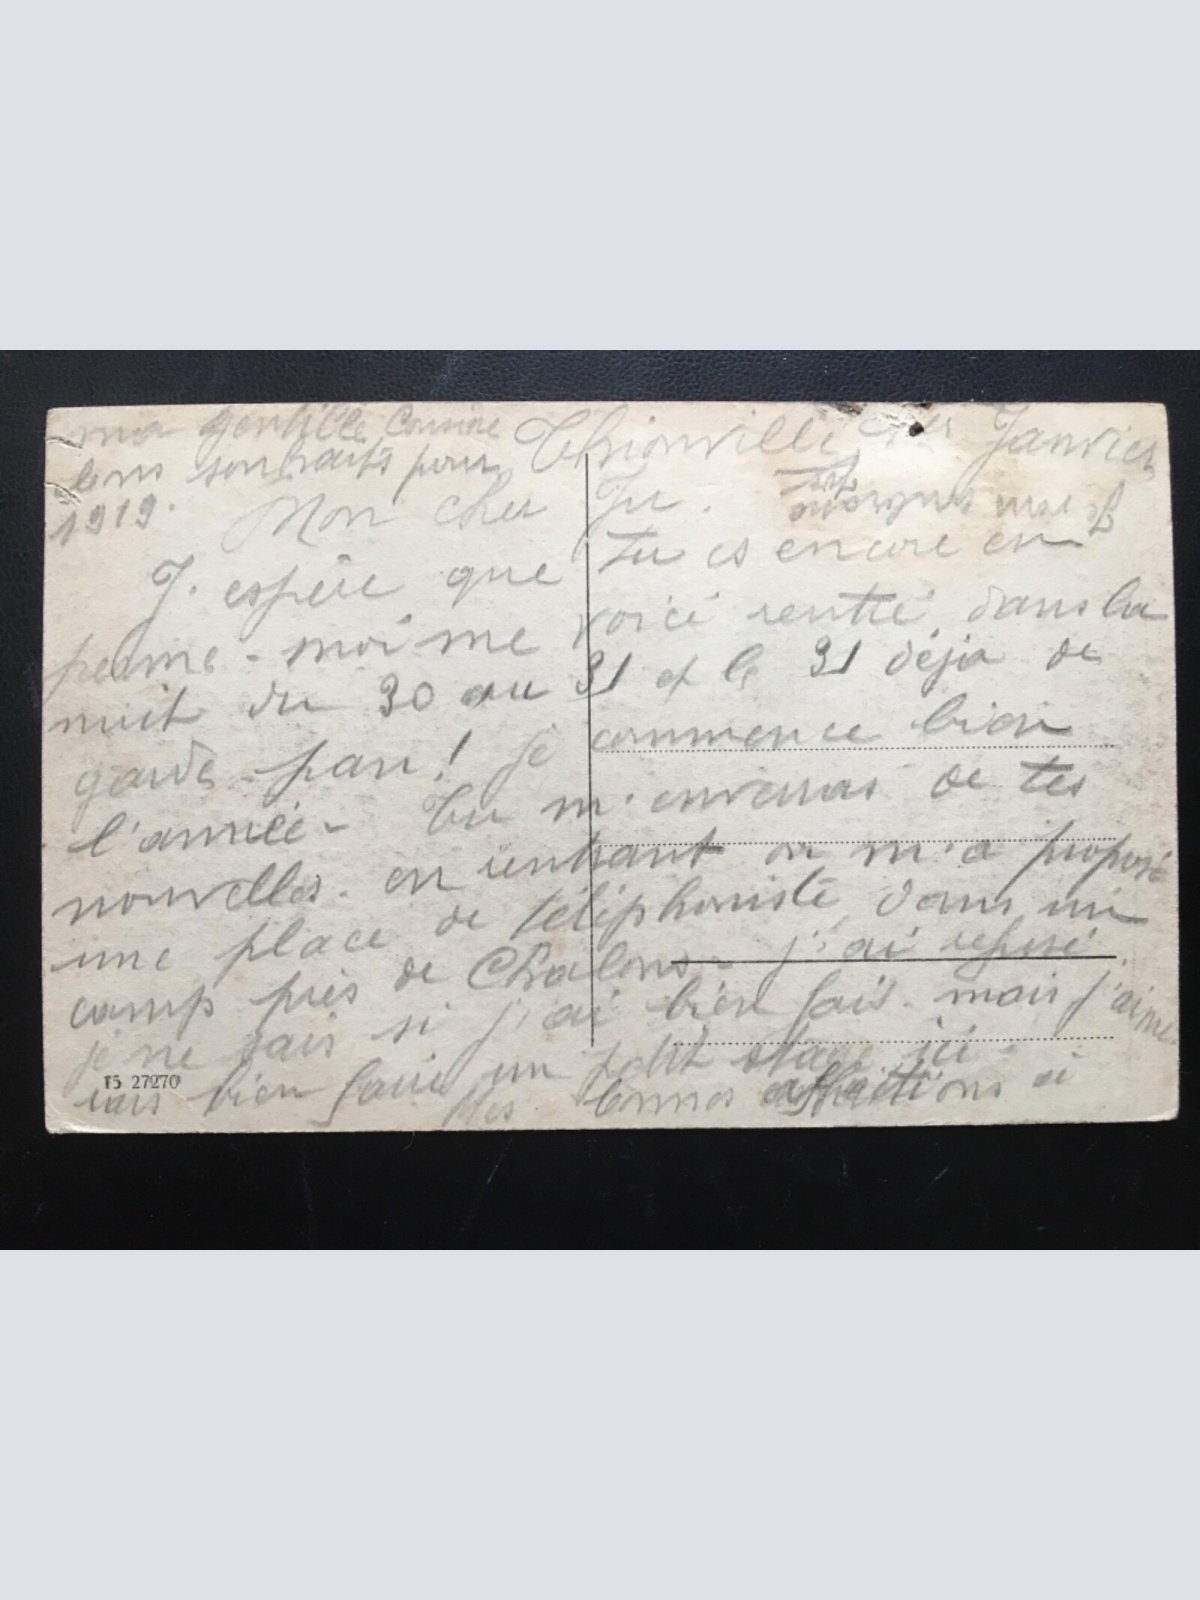 Thionville 1er Janvier
Mon cher Ju.
J. espère que tu es encore en
perme - moi me voici rentré dans la
nuit du 30 au 31 et le 31 déjà de
garde - pan! je commence bien
l'année - Tu m'enverras de tes
nouvelles. en rentrant on m'a proposé
une place de téléphoniste dans un
camp près de Chalons - j'ai refusé
je ne sais si j'ai bien fait - mais j'aime
rais bien faire un petit stage ici -
Mes bonnes affections à
ma gentille Cousine
bons souhaits pour
1919.
Je t'em
15 27270